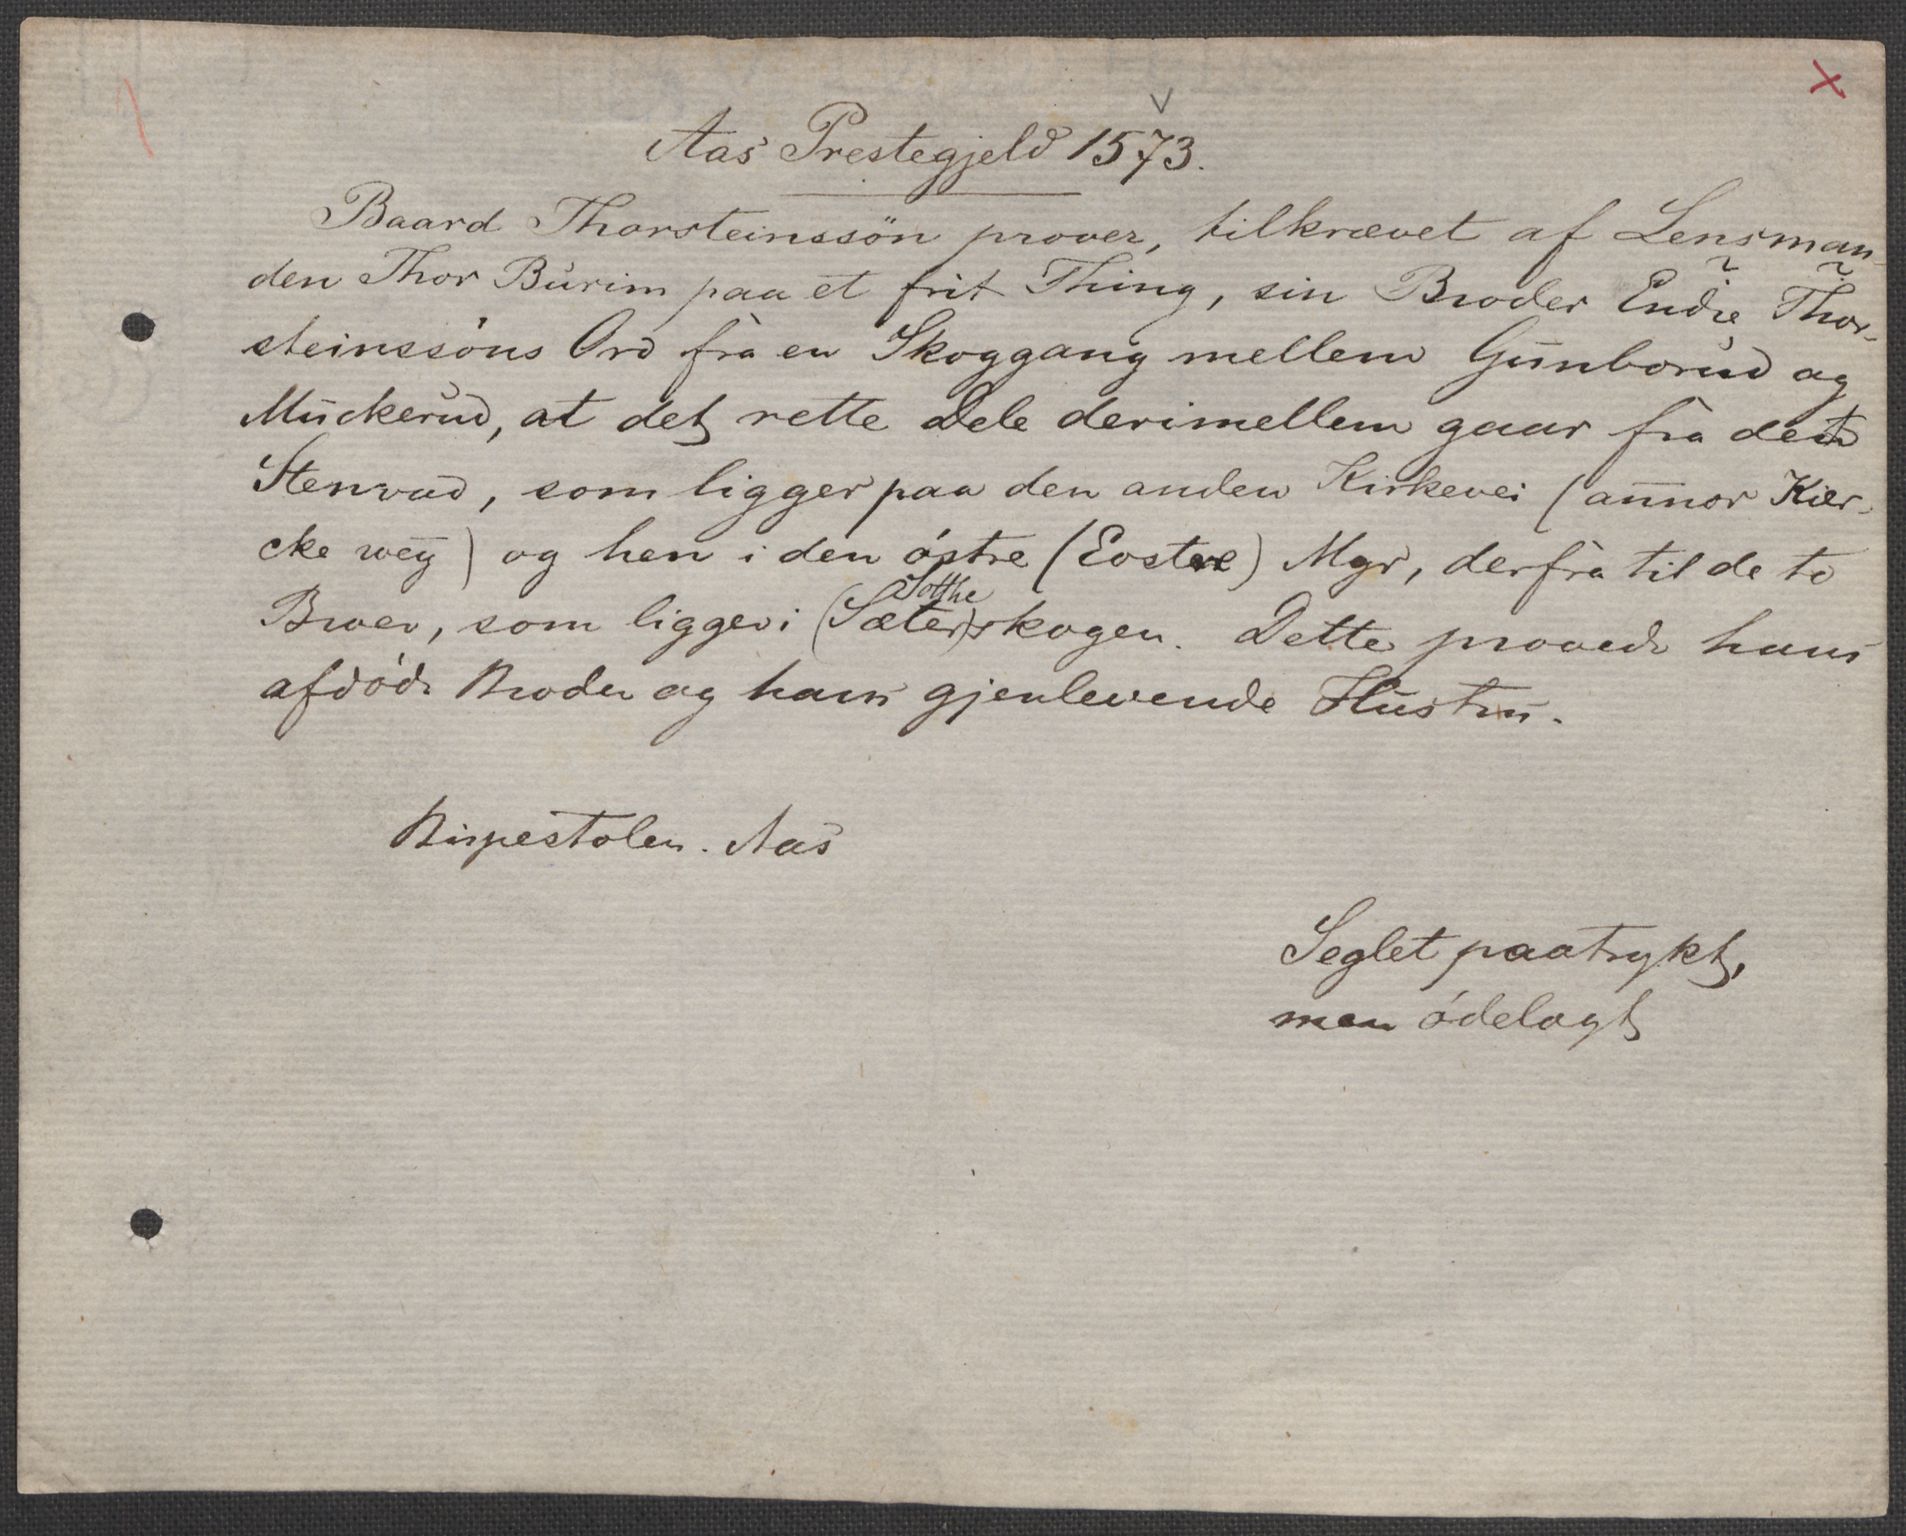 Aas Prestegjeld 1573.
Baard Thorsteinssön prover, tilkrævet af Lensman-
den Thor Burim paa et frit Thing, sin Broder Endre Thor-
steinssöns Ord fra en Skoggang mellem Gunborud og
Muckerud, at det rette Dele derimellem gaar fra det
Stenvad, som ligger paa den anden Kirkevei (annor Kier-
cke weÿ) og hen i den östre (Eostere) Myr, derfra til de to
Sotthe
Broer, som ligger i (Sæter)skogen. Dette provede hans
afdöde Broder og hans gjenlevende Hustru.
Bispestolen. Aas
Seglet paatrykt,
men ödelagt